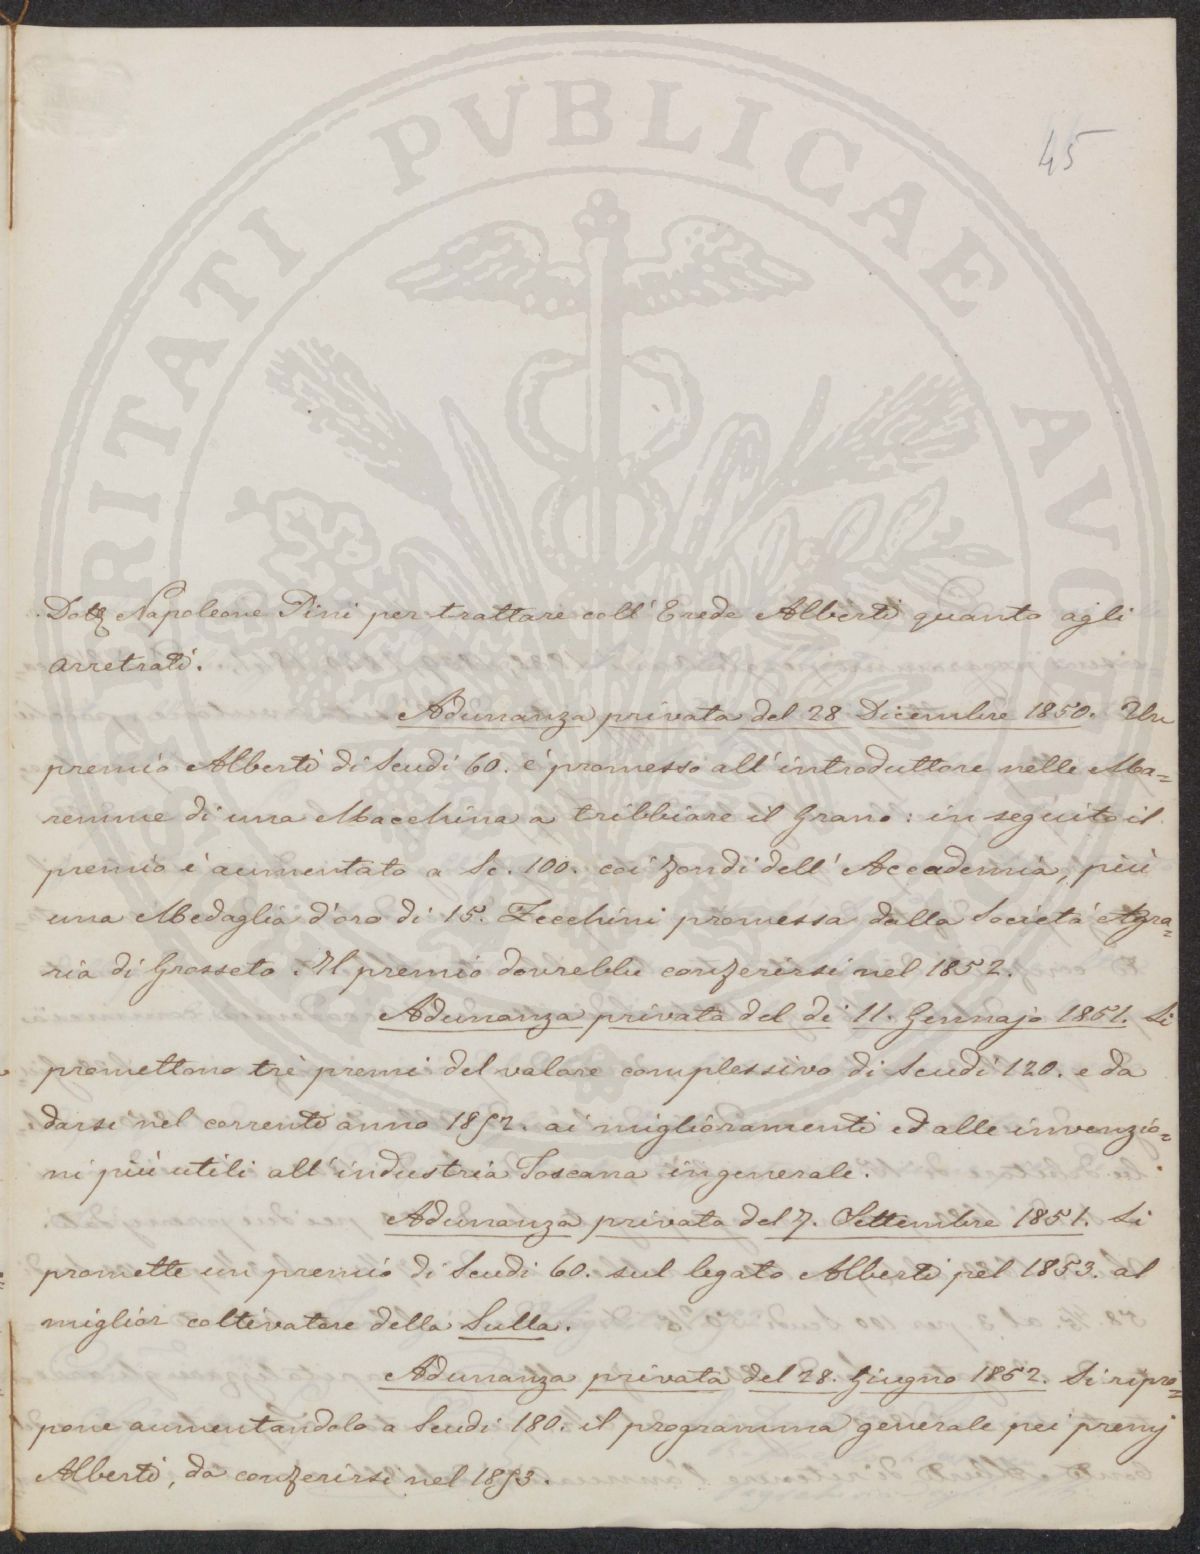 PROSPERITATI PVBLICAE AVGENDAE
45
Dott. Napoleone Pini per trattare coll' Erede Alberti quanto agli
arretrati.
Adunanza privata del 28 Dicembre 1850. Un
premio Alberti di Scudi 60. è promesso all' introduttore nelle Ma=
remme di una Macchina a tribbiare il Grano: in seguito il
premio è aumentato a Sc. 100. coi fondi dell' Accademia, più
una Medaglia d'oro di 15. Zecchini promessa dalla Società Agra=
ria di Grosseto. Il premio dovrebbe conferirsi nel 1852.
Adunanza privata del dì 11. Gennajo 1851. Si
promettono tre premi del valore complessivo di Scudi 120. e da
darsi nel corrente anno 1852. ai miglioramenti ed alle invenzio=
ni più utili all' industria Toscana in generale.
Adunanza privata del 7. Settembre 1851. Si
promette un premio di Scudi 60. sul legato Alberti pel 1853. al
miglior coltivatore della Sulla.
Adunanza privata del 28. Giugno 1852. Si ripro=
pone aumentandolo a Scudi 180. il programma generale pei premj
Alberti, da conferirsi nel 1853.